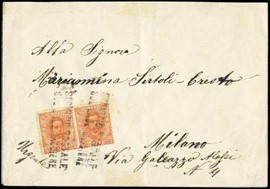 Alla Signora
Mariannina Sirtoli-Cresto
Milano
Via Galeazzo Alessi
N. 4